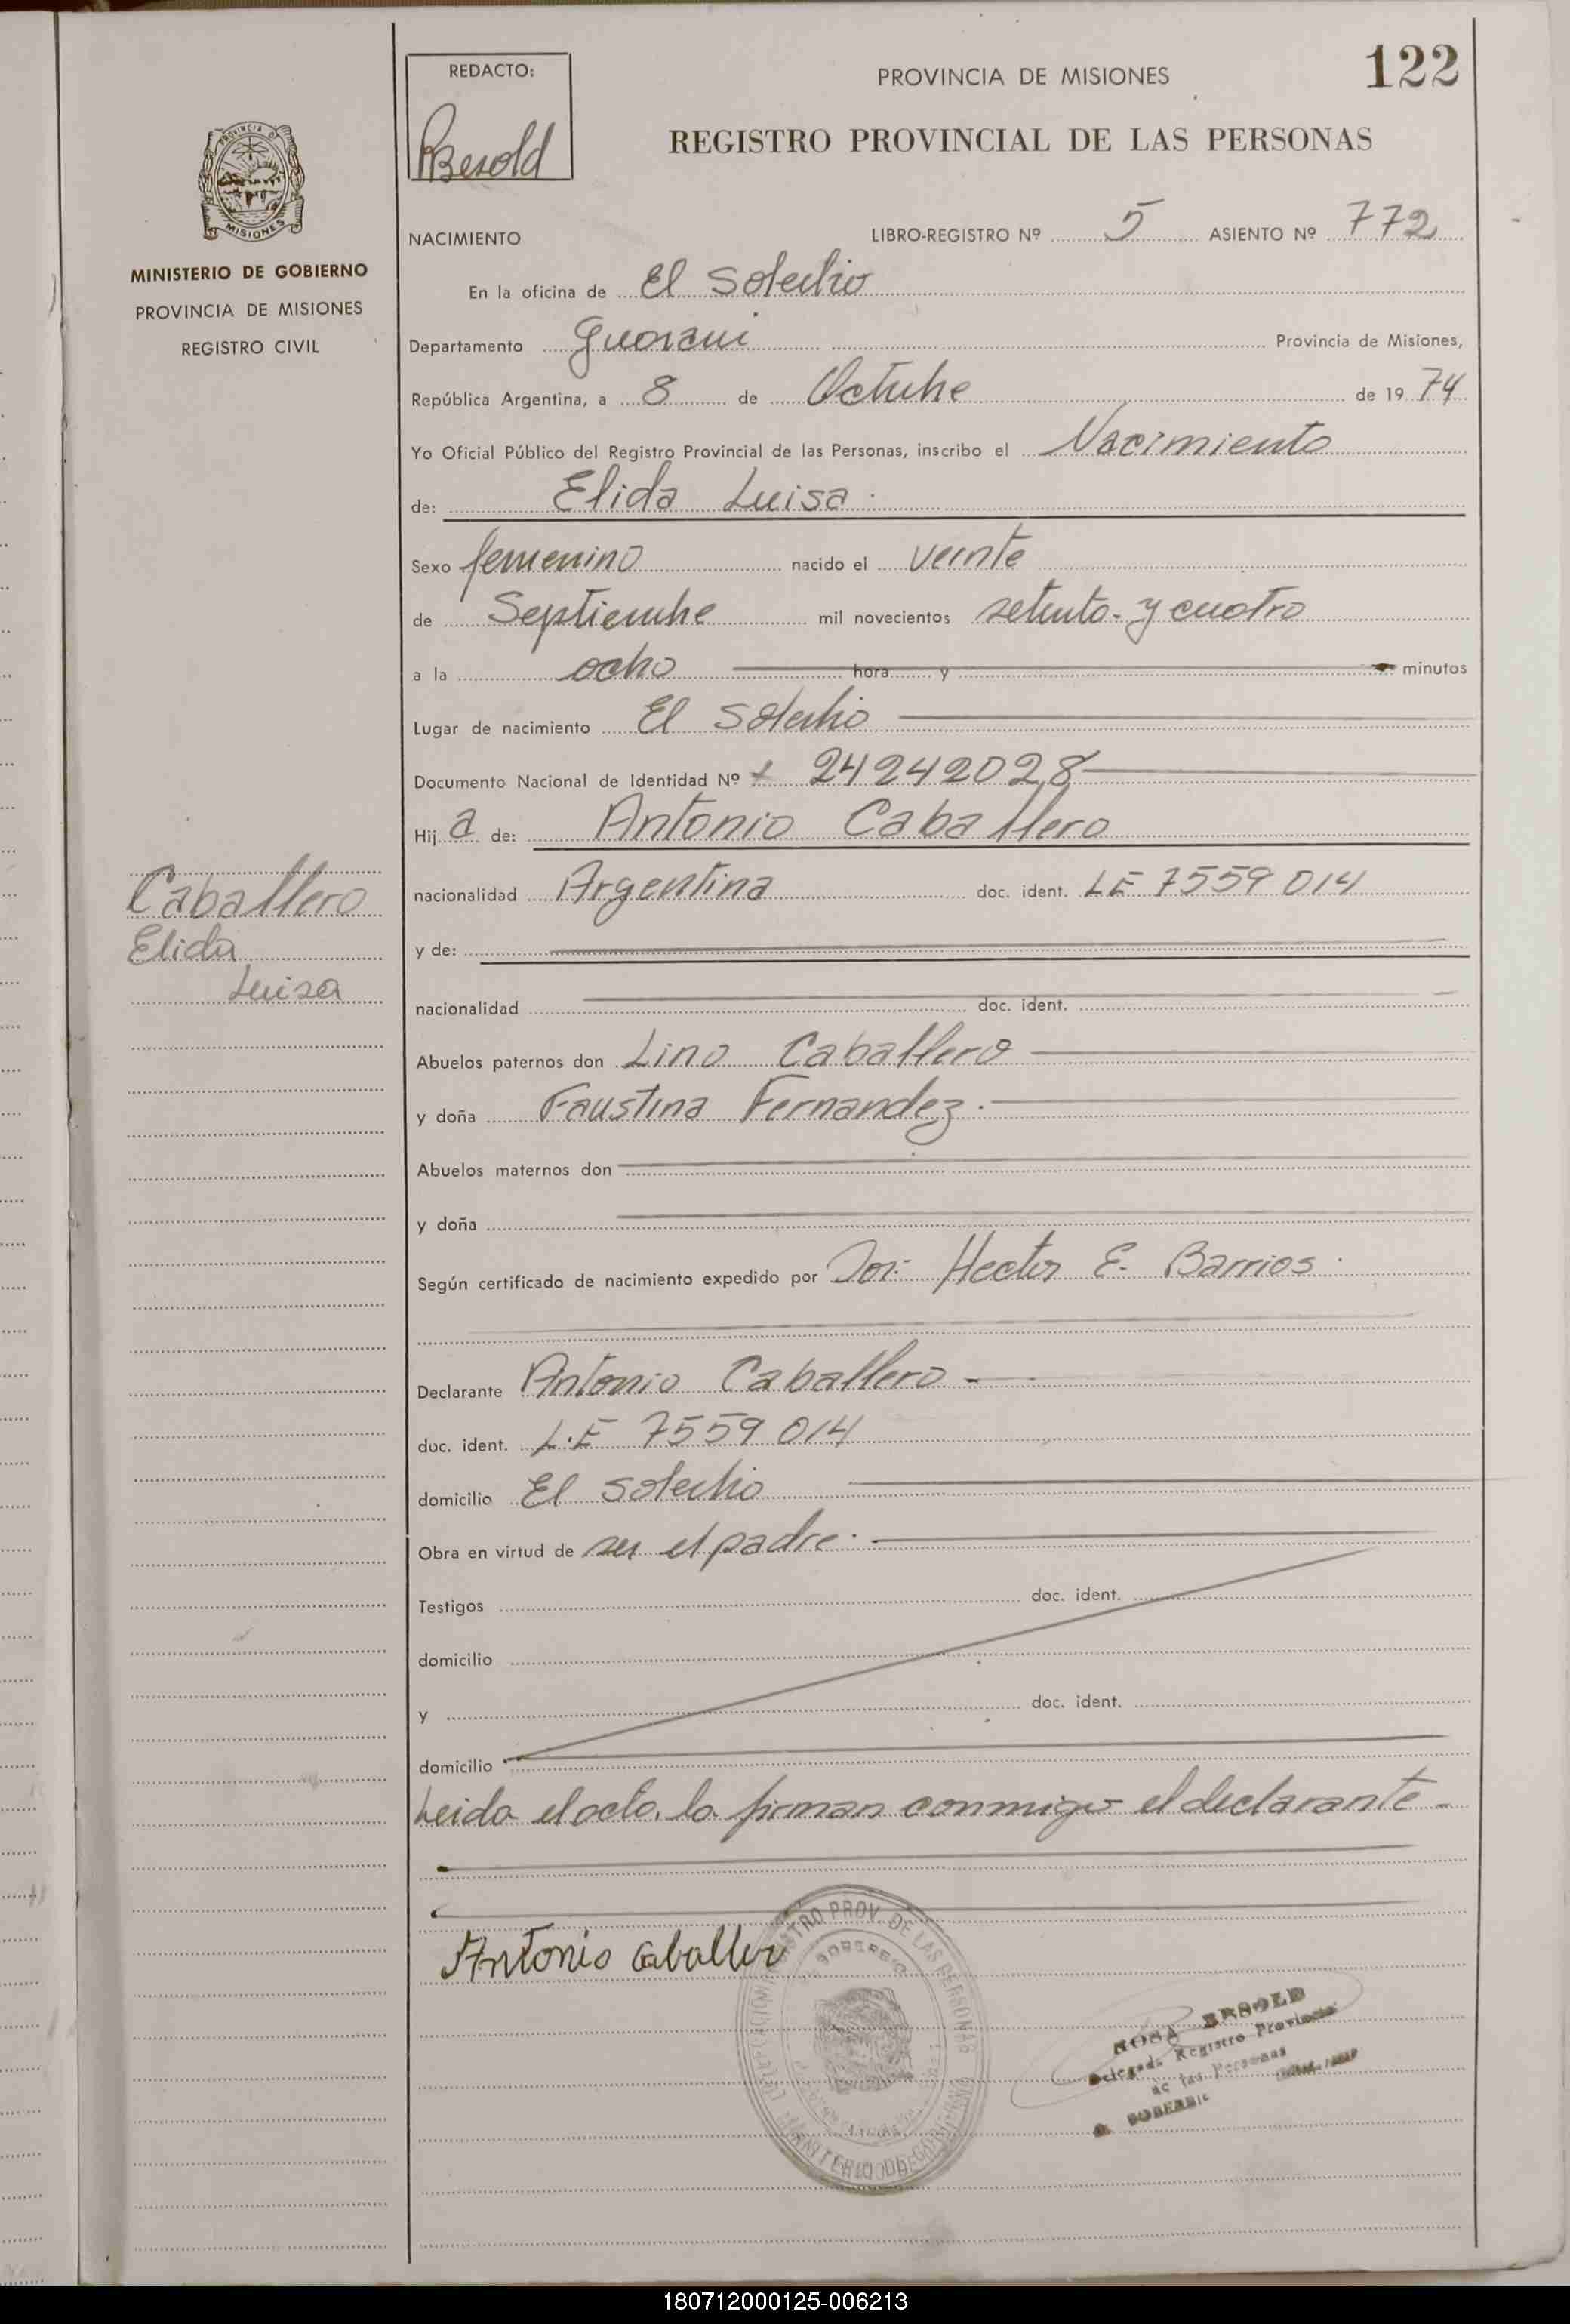 122
REDACTO:
Besold
PROVINCIA DE MISIONES
REGISTRO PROVINCIAL DE LAS PERSONAS
PROVINCIA DE
MISIONES
MINISTERIO DE GOBIERNO
PROVINCIA DE MISIONES
REGISTRO CIVIL
NACIMIENTO LIBRO-REGISTRO Nº 5 ASIENTO Nº 772
En la oficina de El Soberbio
Departamento Guarani Provincia de Misiones,
República Argentina, a 8 de Octubre de 1974
Yo Oficial Público del Registro Provincial de las Personas, inscribo el Nacimiento
de: Elida Luisa.
Sexo femenino nacido el veinte
de Septiembre mil novecientos setenta y cuatro
a la ocho hora y minutos
Lugar de nacimiento El Soberbio
Documento Nacional de Identidad Nº 24242028
Hija de: Antonio Caballero
Caballero
Elida
Luisa
nacionalidad Argentina doc. ident. LE 7559014
y de:
nacionalidad doc. ident.
Abuelos paternos don Lino Caballero
y doña Faustina Fernandez.
Abuelos maternos don
y doña
Según certificado de nacimiento expedido por Dor: Hector E. Barrios.
Declarante Antonio Caballero -
doc. ident. L.E 7559014
domicilio El Soberbio
Obra en virtud de ser el padre.
Testigos doc. ident.
domicilio
y doc. ident.
domicilio
Leida el acto, la firman conmigo el declarante -
Antonio Caballer
REGISTRO PROV. DE LAS PERSONAS
MINISTERIO DE GOBIERNO
ROSA BESOLD
Delegada Registro Provincial
de las Personas
EL SOBERBIO
180712000125-006213